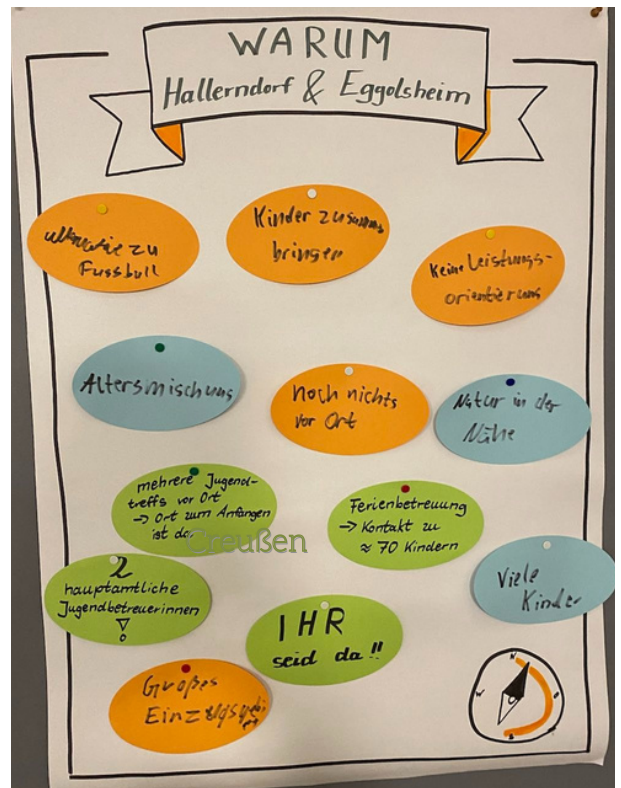 WARUM
Hallerndorf & Eggolsheim
zu
Fussball
Kinder zusamm
bringen
Keine Leistungs-
orientierung
Altersmischung
noch nichts
vor Ort
Natur in der
Nähe
mehrere Jugend-
treffs vor Ort
→ Ort zum Anfangen
ist da
Creußen
Ferienbetreuung
→ Kontakt zu
≈ 70 Kindern
2
hauptamtliche
Jugendbetreuerinnen
!
Viele
Kinder
IHR
seid da!!
Großes